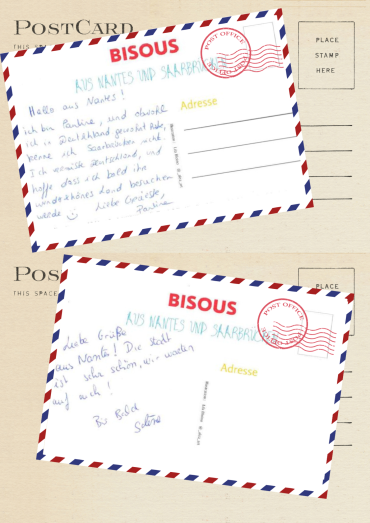 POSTCARD
THIS SP
PLACE
STAMP
HERE
BISOUS
POST OFFICE
AUS NANTES UND SAARBRÜCKEN
Adresse
Hallo aus Nantes !
ich bin Pauline, und obwohl
ich in Deutschland gewohnt habe,
kenne ich Saarbrücken nicht.
Ich vermisse Deutschland, und
hoffe dass ich bald ihr
wunderschönes Land besuchen
werde Liebe Grüsse,
Pauline
POS
THIS SPACE
PLACE
BISOUS
POST OFFICE
AUS NANTES UND SAARBRÜC
Adresse
Liebe Grüße
aus Nantes! Die Stadt
ist sehr schön, wir warten
auf euch !
Bis Bald